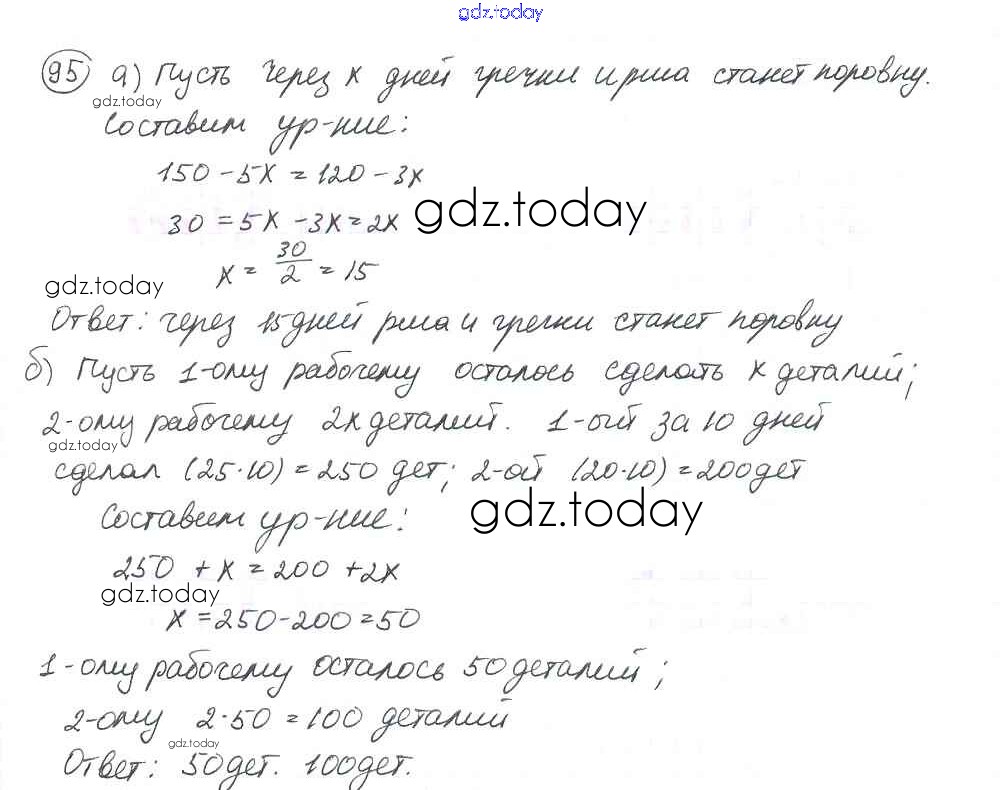 gdz.today
95 а) Пусть через x дней гречки и риса станет поровну.
gdz.today
Составим ур-ние:
150 - 5x = 120 - 3x
30 = 5x - 3x = 2x gdz.today
x = 30/2 = 15
gdz.today
Ответ: через 15 дней риса и гречки станет поровну
б) Пусть 1-ому рабочему осталось сделать x деталий;
2-ому рабочему 2x деталий. 1-ый за 10 дней
gdz.today
сделал (25·10) = 250 дет; 2-ой (20·10) = 200 дет
Составим ур-ние: gdz.today
250 + x = 200 + 2x
gdz.today
x = 250 - 200 = 50
1-ому рабочему осталось 50 деталий;
2-ому 2·50 = 100 деталий
gdz.today
Ответ: 50 дет. 100 дет.